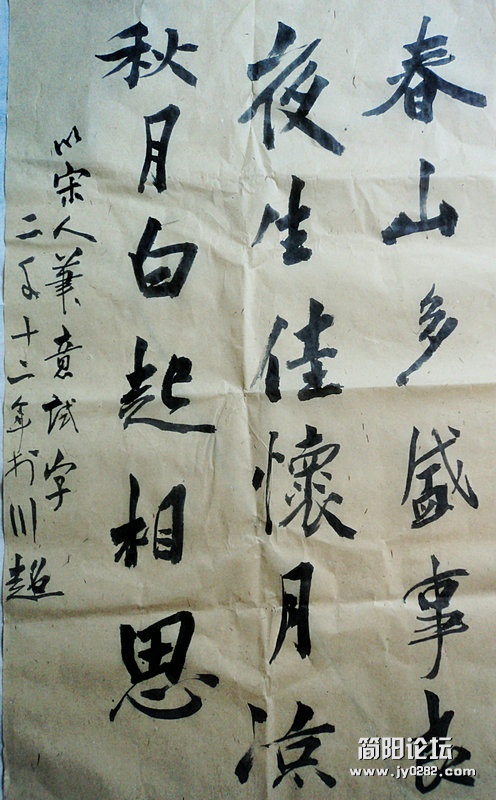 春山多盛事长
夜生佳懷月涼
秋月白起相思
以宋人筆意試字
二〇十二年於川超
简阳论坛
www.jy0282.com